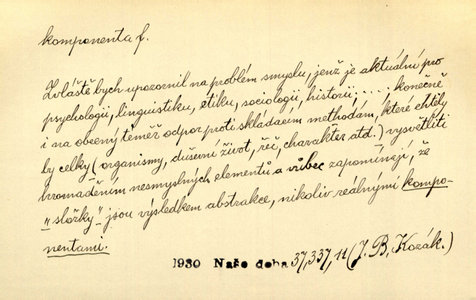 komponenta f.
Zvláště bych upozornil na problém smyslu, jenž je aktuální pro
psychologii, linguistiku, etiku, sociologii, historii; .... konečně
i na obecný téměř odpor proti skládacím methodám, které chtěly
by celky (organismy, duševní život, řeč, charakter atd.) vysvětliti
hromaděním nesmyslných elementů a vůbec zapomínají, že
"složky" jsou výsledkem abstrakce, nikoliv reálnými kompo-
nentami.
1930 Naše doba 37,337,11 (J. B. Kozák.)